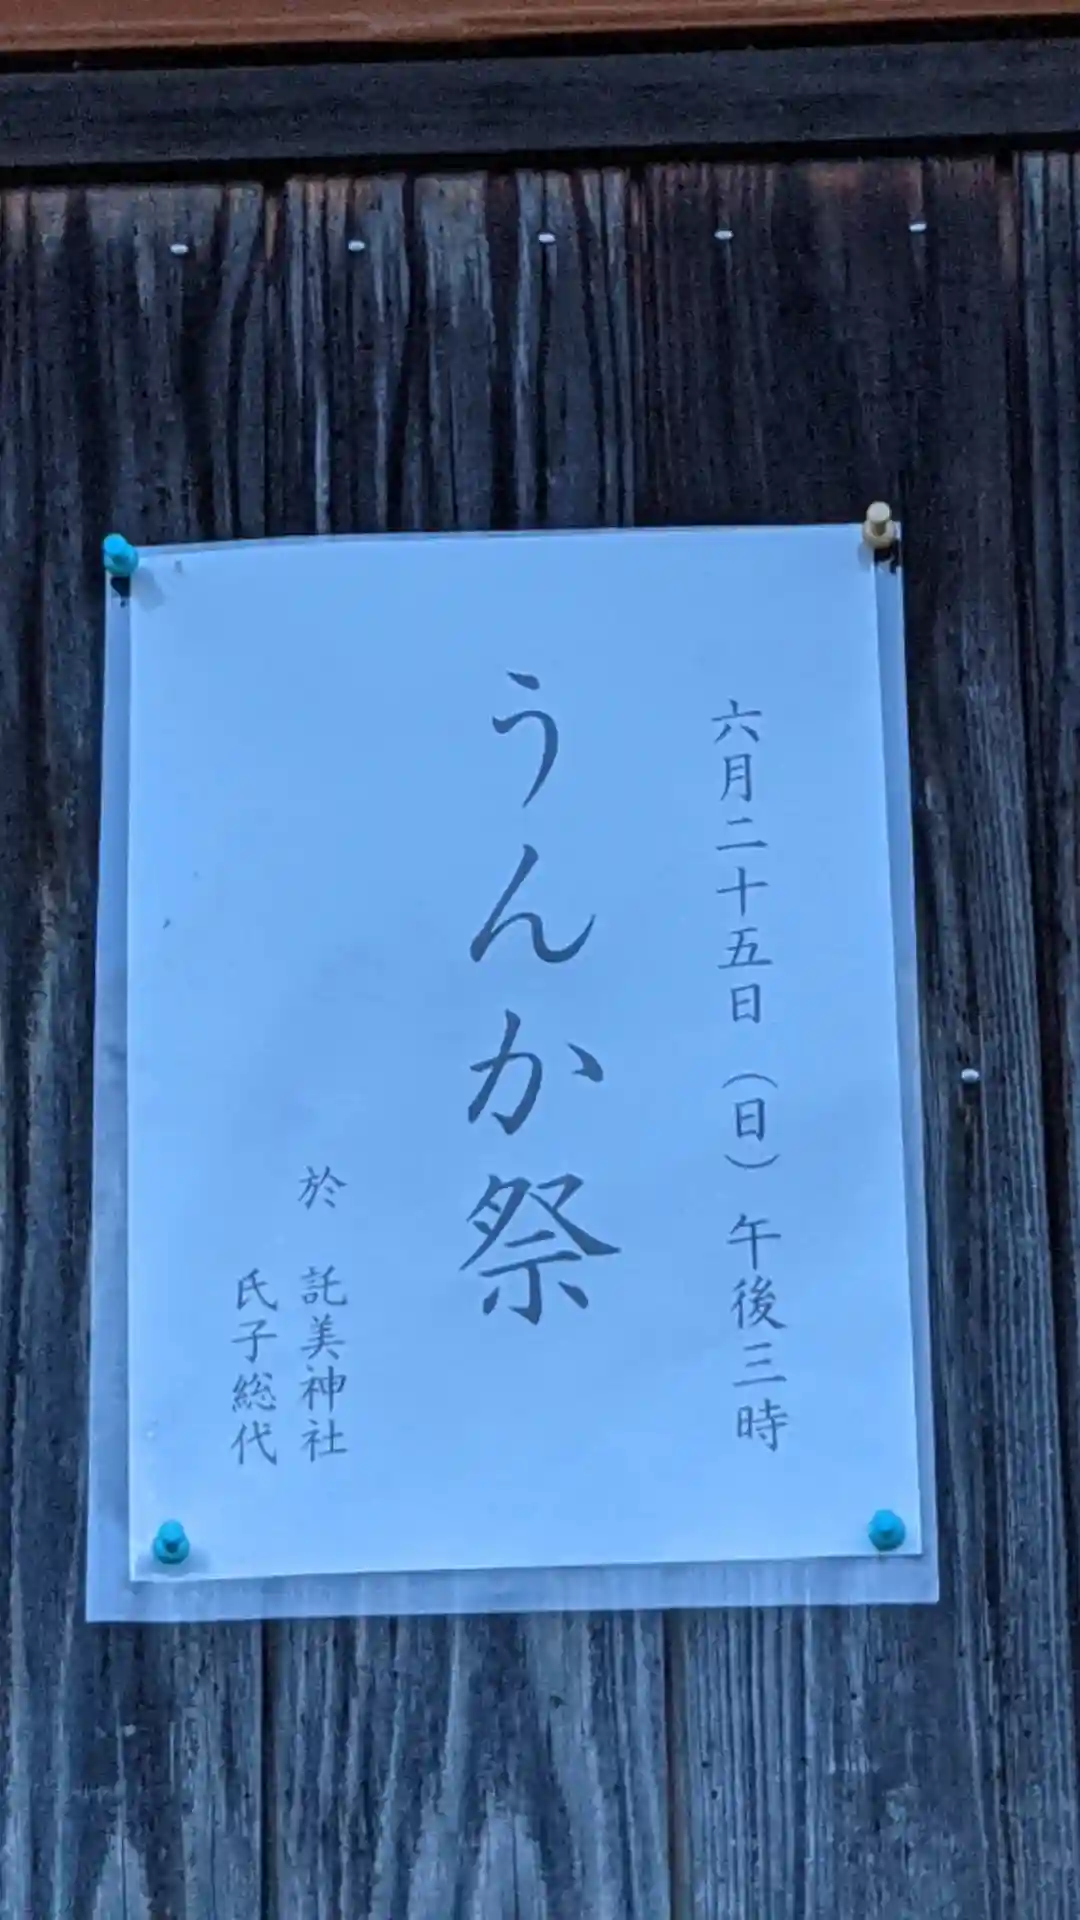 六月二十五日（日）午後三時
うんか祭
於 託美神社
氏子総代